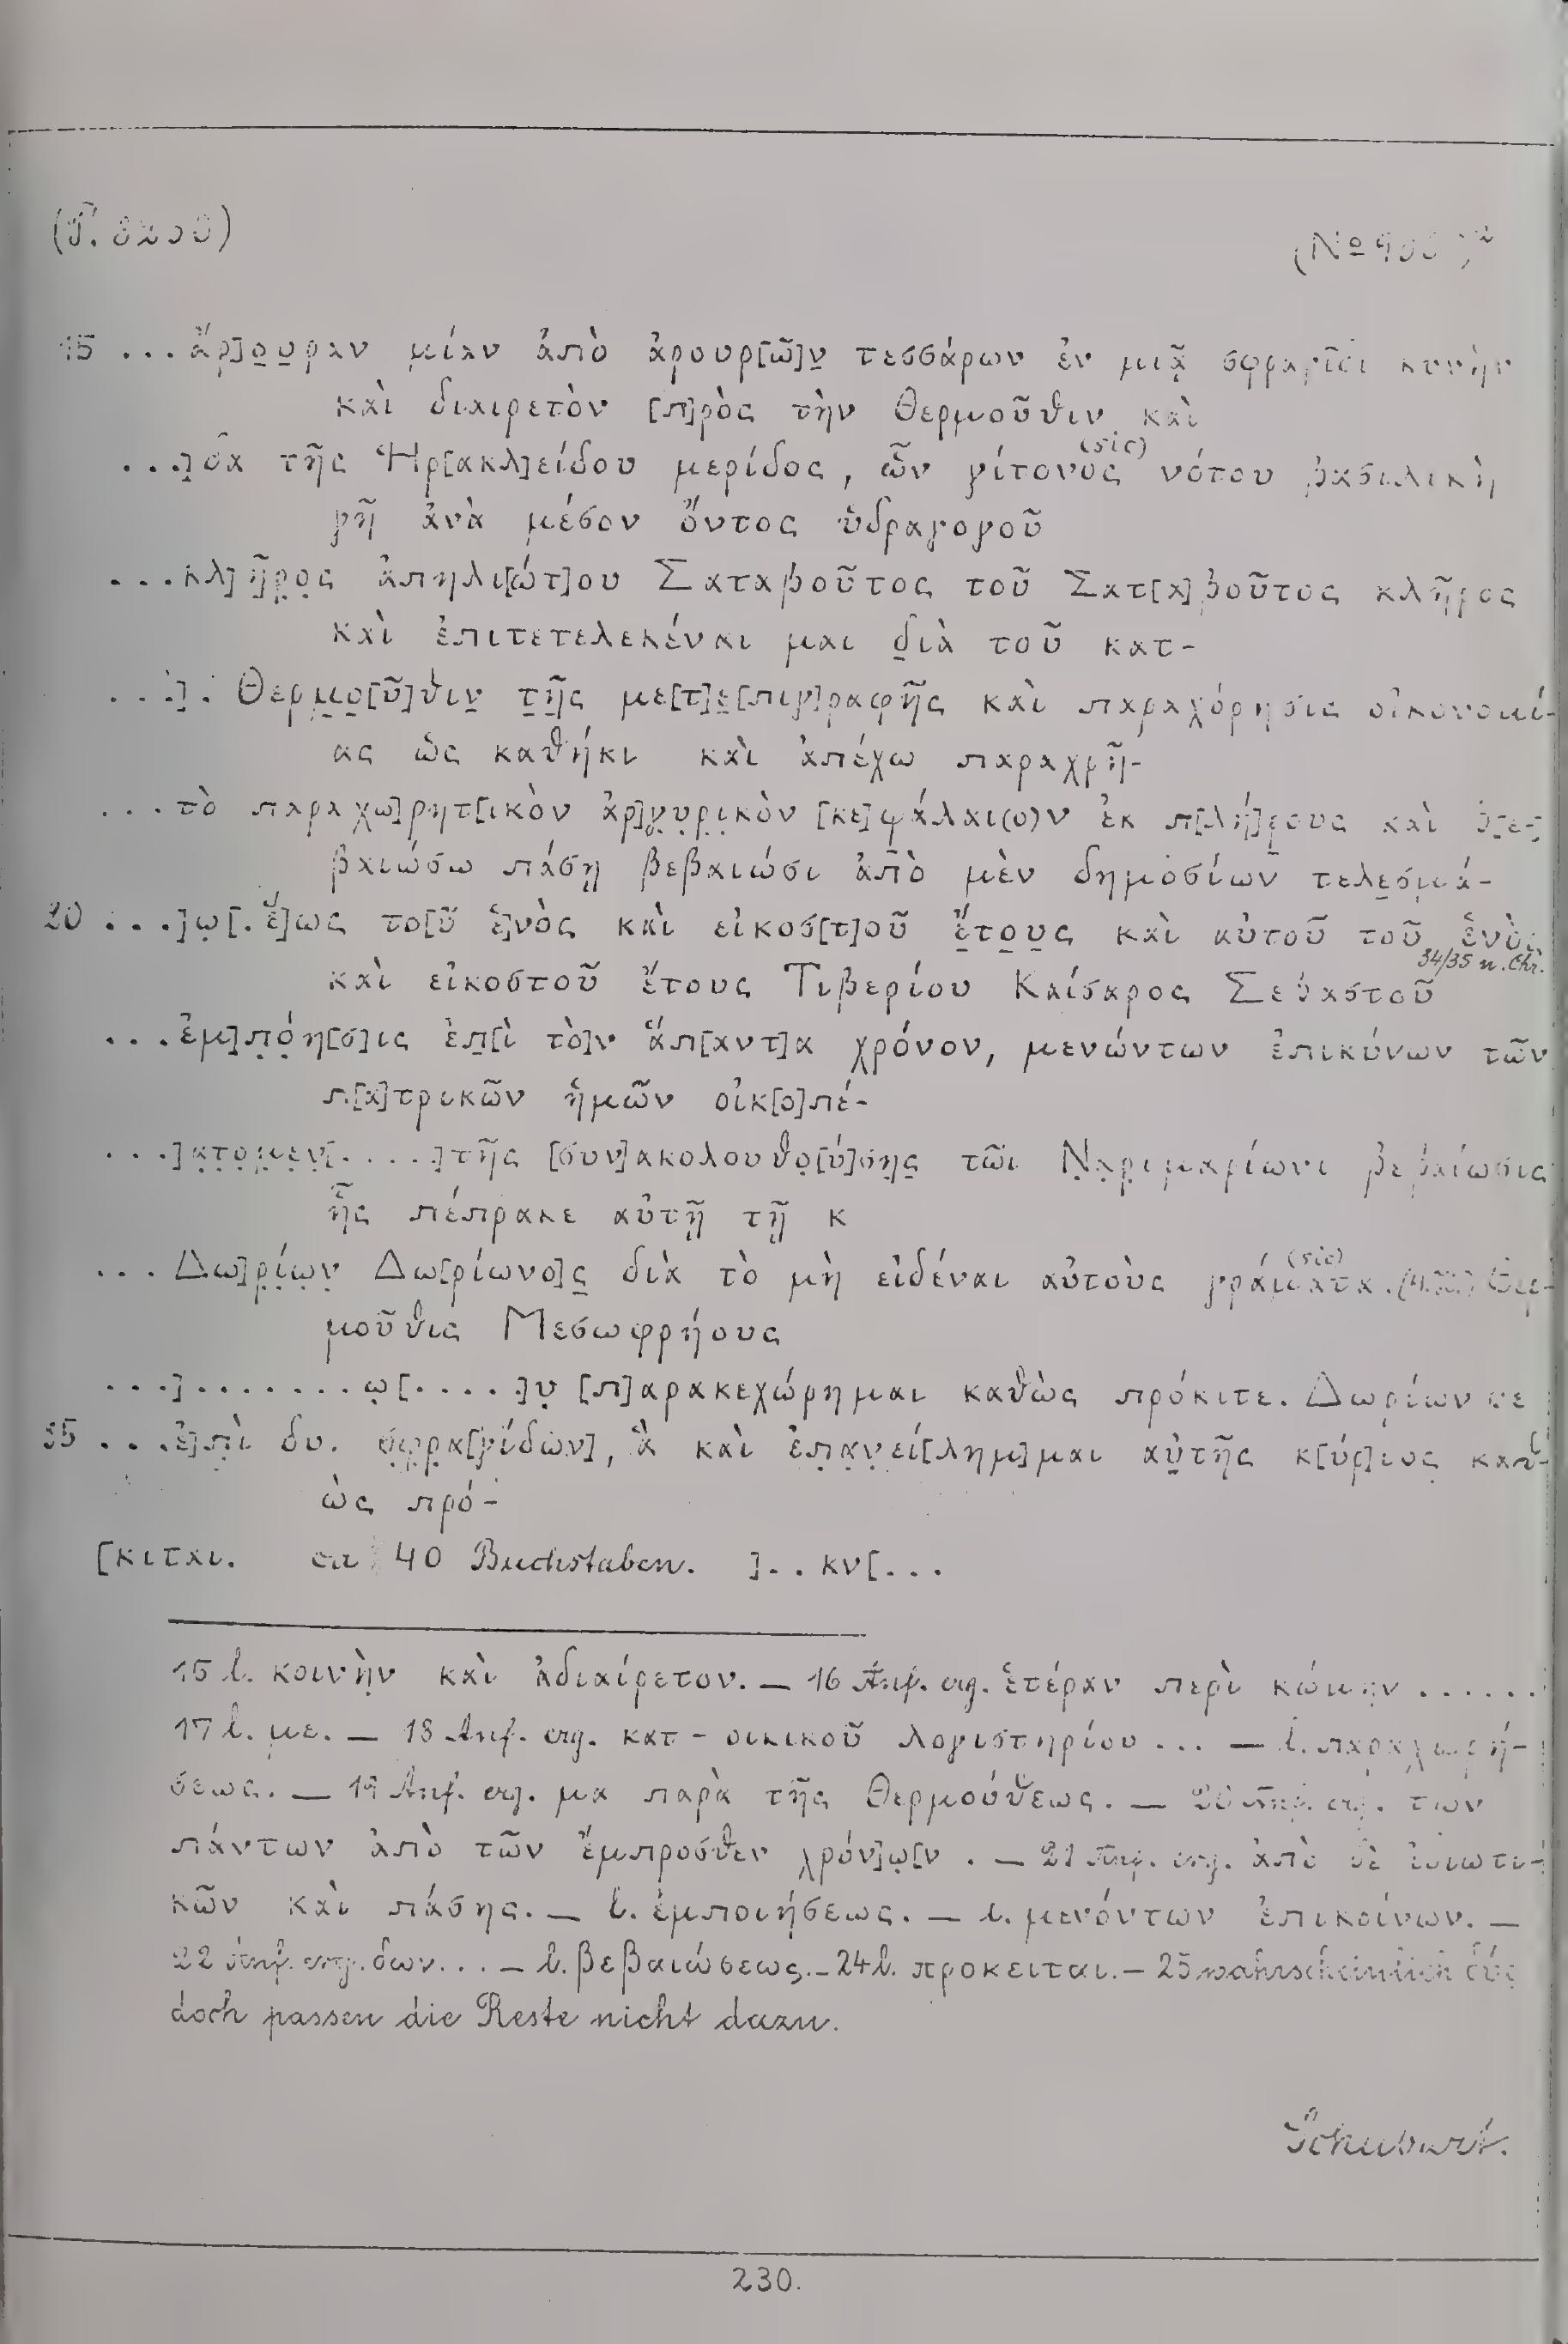 15 ...ἄρ]ο̣υ̣ραν μίαν ἀπὸ ἀρουρ[ῶ]ν̣ τεσσάρων ἐν μιᾷ σφραγῖδι κυνὴν
καὶ διαιρετὸν [π]ρὸς τὴν Θερμοῦθιν καὶ
...]δα τῆς Ἡρ[ακλ]είδου μερίδος, ὧν γίτονος (sic) νότου βασιλικὴ
γῆ ἀνὰ μέσον ὄντος ὑδραγογοῦ
...κλ]ῆ̣ρ̣ο̣ς ἀπηλι[ώτ]ου Σαταβοῦτος τοῦ Σατ[α]βοῦτος κλῆρος
καὶ ἐπιτετελεκέναι μαι δ̣ιὰ τοῦ κατ-
...]. Θερμ̣ο̣[ῦ]θιν̣ τ̣ῆ̣ς με[τ]ε̣[πιγ]ραφῆς καὶ παραχόρησις οἰκονομί-
ας ὡς καθήκι καὶ ἀπέχω παραχρῆ-
...τὸ παραχω]ρητ[ικὸν ἀρ]γ̣υ̣ρ̣ι̣κὸν [κε]φάλαι(ο)ν ἐκ π[λή]ρους καὶ β[ε-]
βαιώσω πάσῃ βεβαιώσι ἀπὸ μὲν δημοσίων τελε̣σμά-
20 ...]ω̣[.ἕ]ως το[ῦ ἑ]νὸς καὶ εἰκοσ[τ]οῦ ἔ̣τ̣ο̣υ̣ς καὶ αὐτοῦ τοῦ ἑνὸς
34/35 n. Chr.
καὶ εἰκοστοῦ ἔτους Τιβερίου Καίσαρος Σεβαστοῦ
...ἐμ]π̣ό̣η[σ]ις ἐπ̣[ὶ τὸ]ν ἅπ[αντ]α χρόνον, μενώντων ἐπικύνων τῶν
π[α]τρικῶν ἡμῶν οἰκ[ο]πέ-
...]α̣τ̣ο̣μ̣ε̣ν̣[.....]τῆς [συν]ακολουθο̣[ύ]σης̣ τῶι Ν̣α̣ρ̣ιμαρίωνι βεβαίωσις
ἧς πέπρακε αὐτῇ τῇ κ
... Δω]ρ̣ί̣ω̣ν̣ Δω[ρίωνο]ς̣ διὰ τὸ μὴ εἰδέναι αὐτοὺς γράματα (sic). Θερ-
μοῦθις Μεσωφρήους
...].......ω̣[.....]υ̣ [π]αρακεχώρημαι καθὼς πρόκιτε. Δωρίων
25 ...ἐ]π̣ὶ δυ. σ̣φ̣ρ̣α[γίδων], ἃ καὶ ἐπ̣α̣ν̣εί[λημ]μαι αὐ̣τῆς κ[ύρ]ιος καθ-
ὼς πρό-
[κιται. ca 40 Buchstaben. ]..κν[...
15 l. κοινὴν καὶ ἀδιαίρετον. — 16 Anf. erg. ἑτέραν περὶ κώμην ......
17 l. με. — 18 Anf. erg. κατ-οικικοῦ λογιστηρίου ... — l. παραχωρή-
σεως. — 19 Anf. erg. μα παρὰ τῆς Θερμούθεως. — 20 Anf. erg. των
πάντων ἀπὸ τῶν ἔμπροσθεν χρόν]ω̣[ν. — 21 Anf. erg. ἀπὸ δὲ ἰδιωτι-
κῶν καὶ πάσης. — l. ἐμποιήσεως. — l. μενόντων ἐπικοίνων. —
22 Anf. erg. δων... — l. βεβαιώσεως. — 24 l. πρόκειται. — 25 wahrscheinlich δύο
doch passen die Reste nicht dazu.
Schubart.
230.